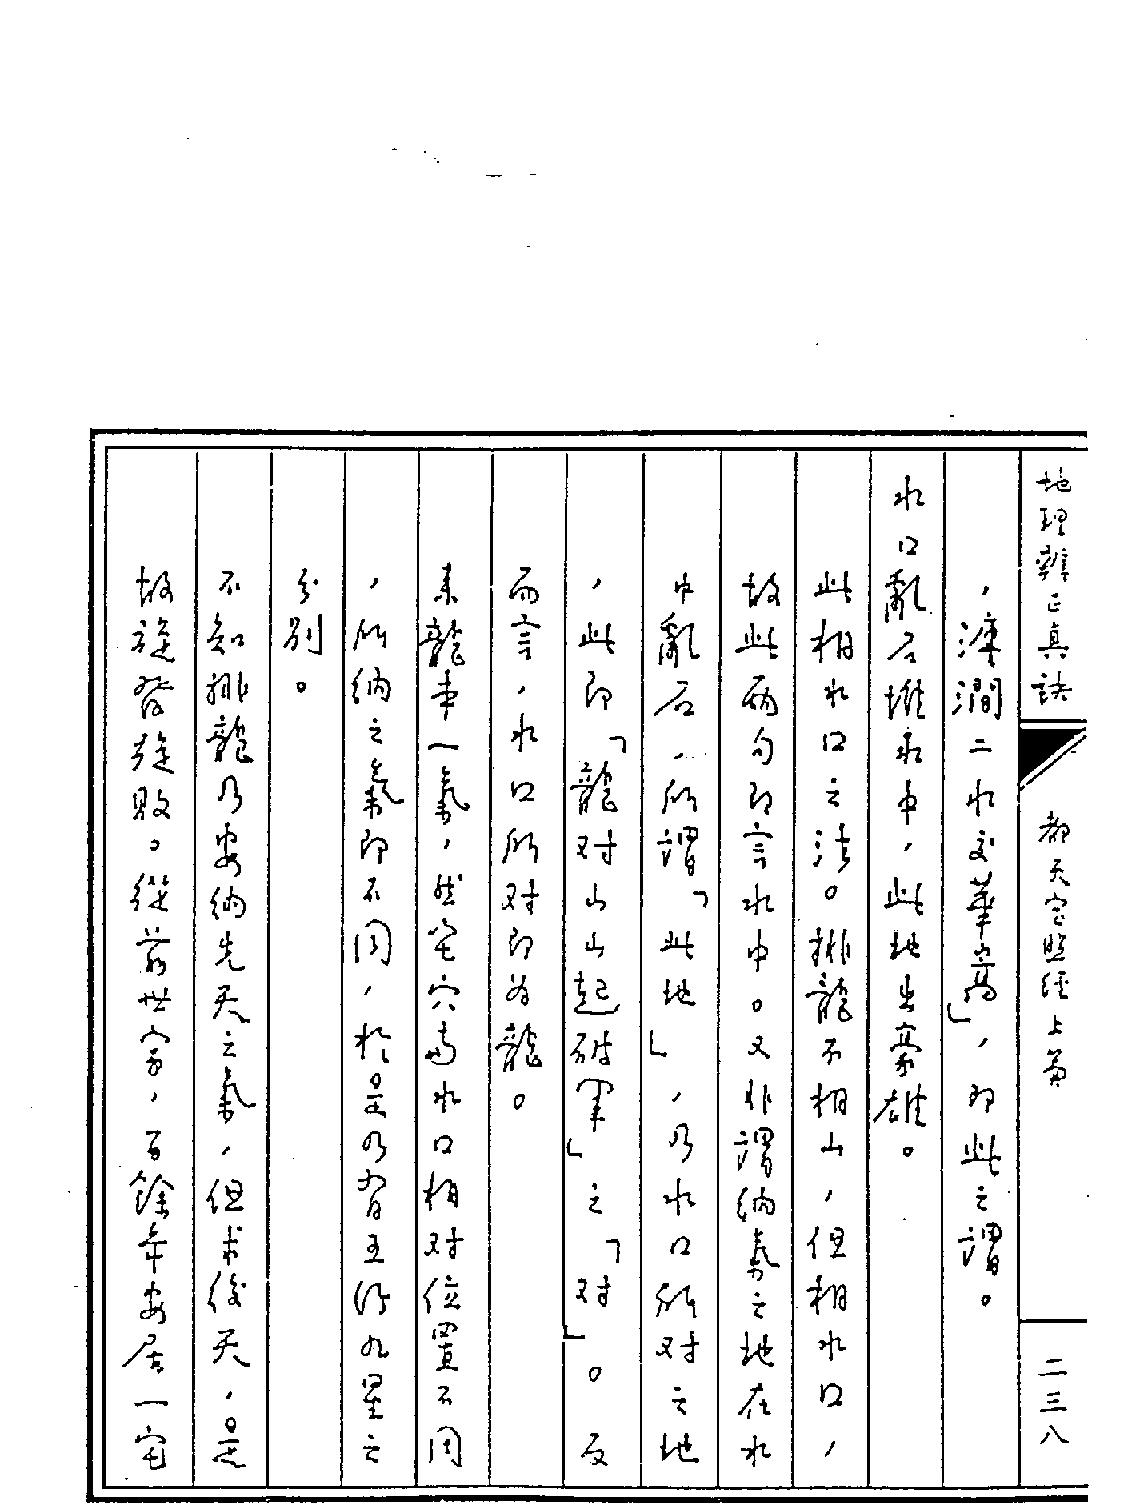 地理辨正真訣
都天宝照經上篇
二三八
，瀍澗二水交華嵩」，即此之謂。
水口亂石堆水中，此地出豪雄。
此相水口之法。排龍不相山，但相水口，
故此兩句即言水中。又非謂納氣之地在水
中亂石，所謂「此地」，乃水口所对之地
，此即「龍对山山起破軍」之「对」。反
而言，水口所对即为龍。
来龍本一氣，然至穴与水口相对位置不同
，所納之氣即不同，於是乃有五行九星之
分别。
不知排龍乃要納先天之氣，但求後天，是
故旋發旋敗。從前世家，百餘年安居一宅